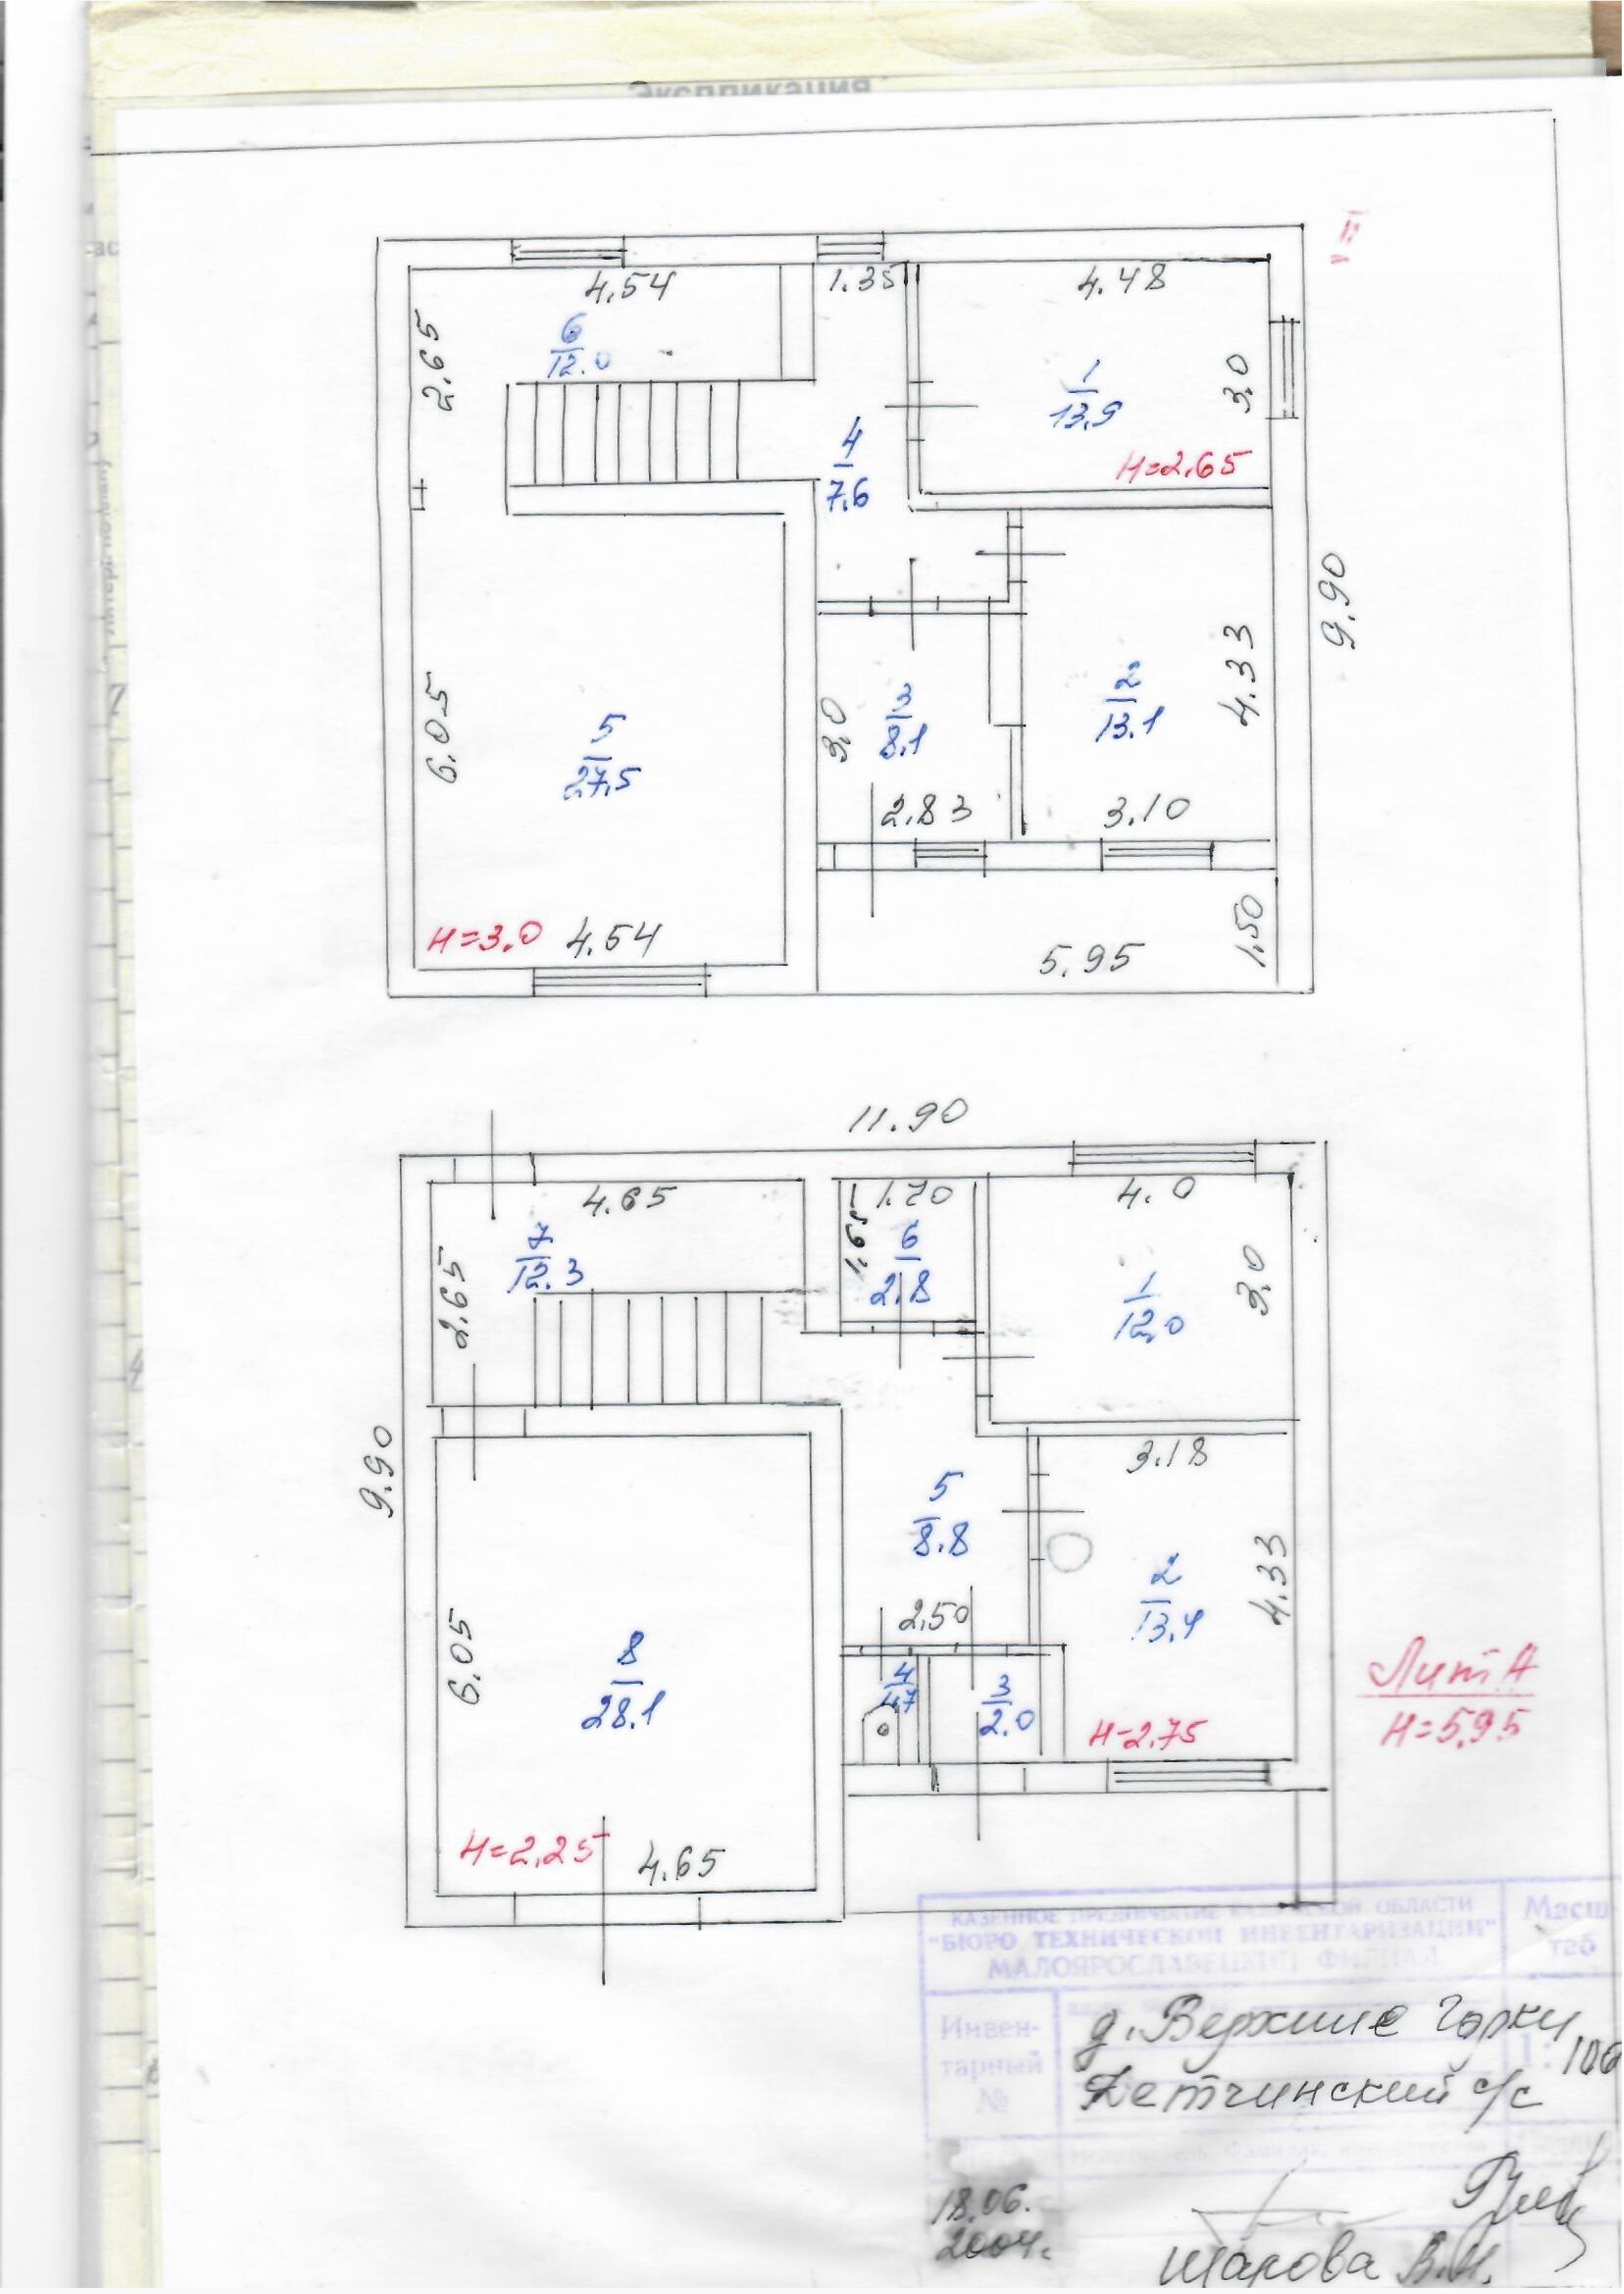 Экспликация
II
4.54
1.35
4.48
2.65
6
12.0
3.0
1
13.9
H=2.65
4
7.6
9.90
6.05
5
27.5
3.0
3
8.1
2
13.1
4.33
2.83
3.10
H=3.0
4.54
5.95
1.50
11.90
4.65
1.70
4.0
1.65
7
12.3
2.65
6
2.8
1
12.0
3.0
9.90
3.18
5
8.8
2
13.4
4.33
2.50
6.05
8
28.1
4
1.7
3
2.0
H=2.75
Лит А
H=5.95
H=2.25
4.65
КАЗЕННОЕ ПРЕДПРИЯТИЕ КАЛУЖСКОЙ ОБЛАСТИ
"БЮРО ТЕХНИЧЕСКОЙ ИНВЕНТАРИЗАЦИИ"
МАЛОЯРОСЛАВЕЦКИЙ ФИЛИАЛ
Масш
таб
Инвен-
тарный
№
д. Верхние Горки
Детчинский с/с
1:100
18.06.
2004г.
Шарова В.И.